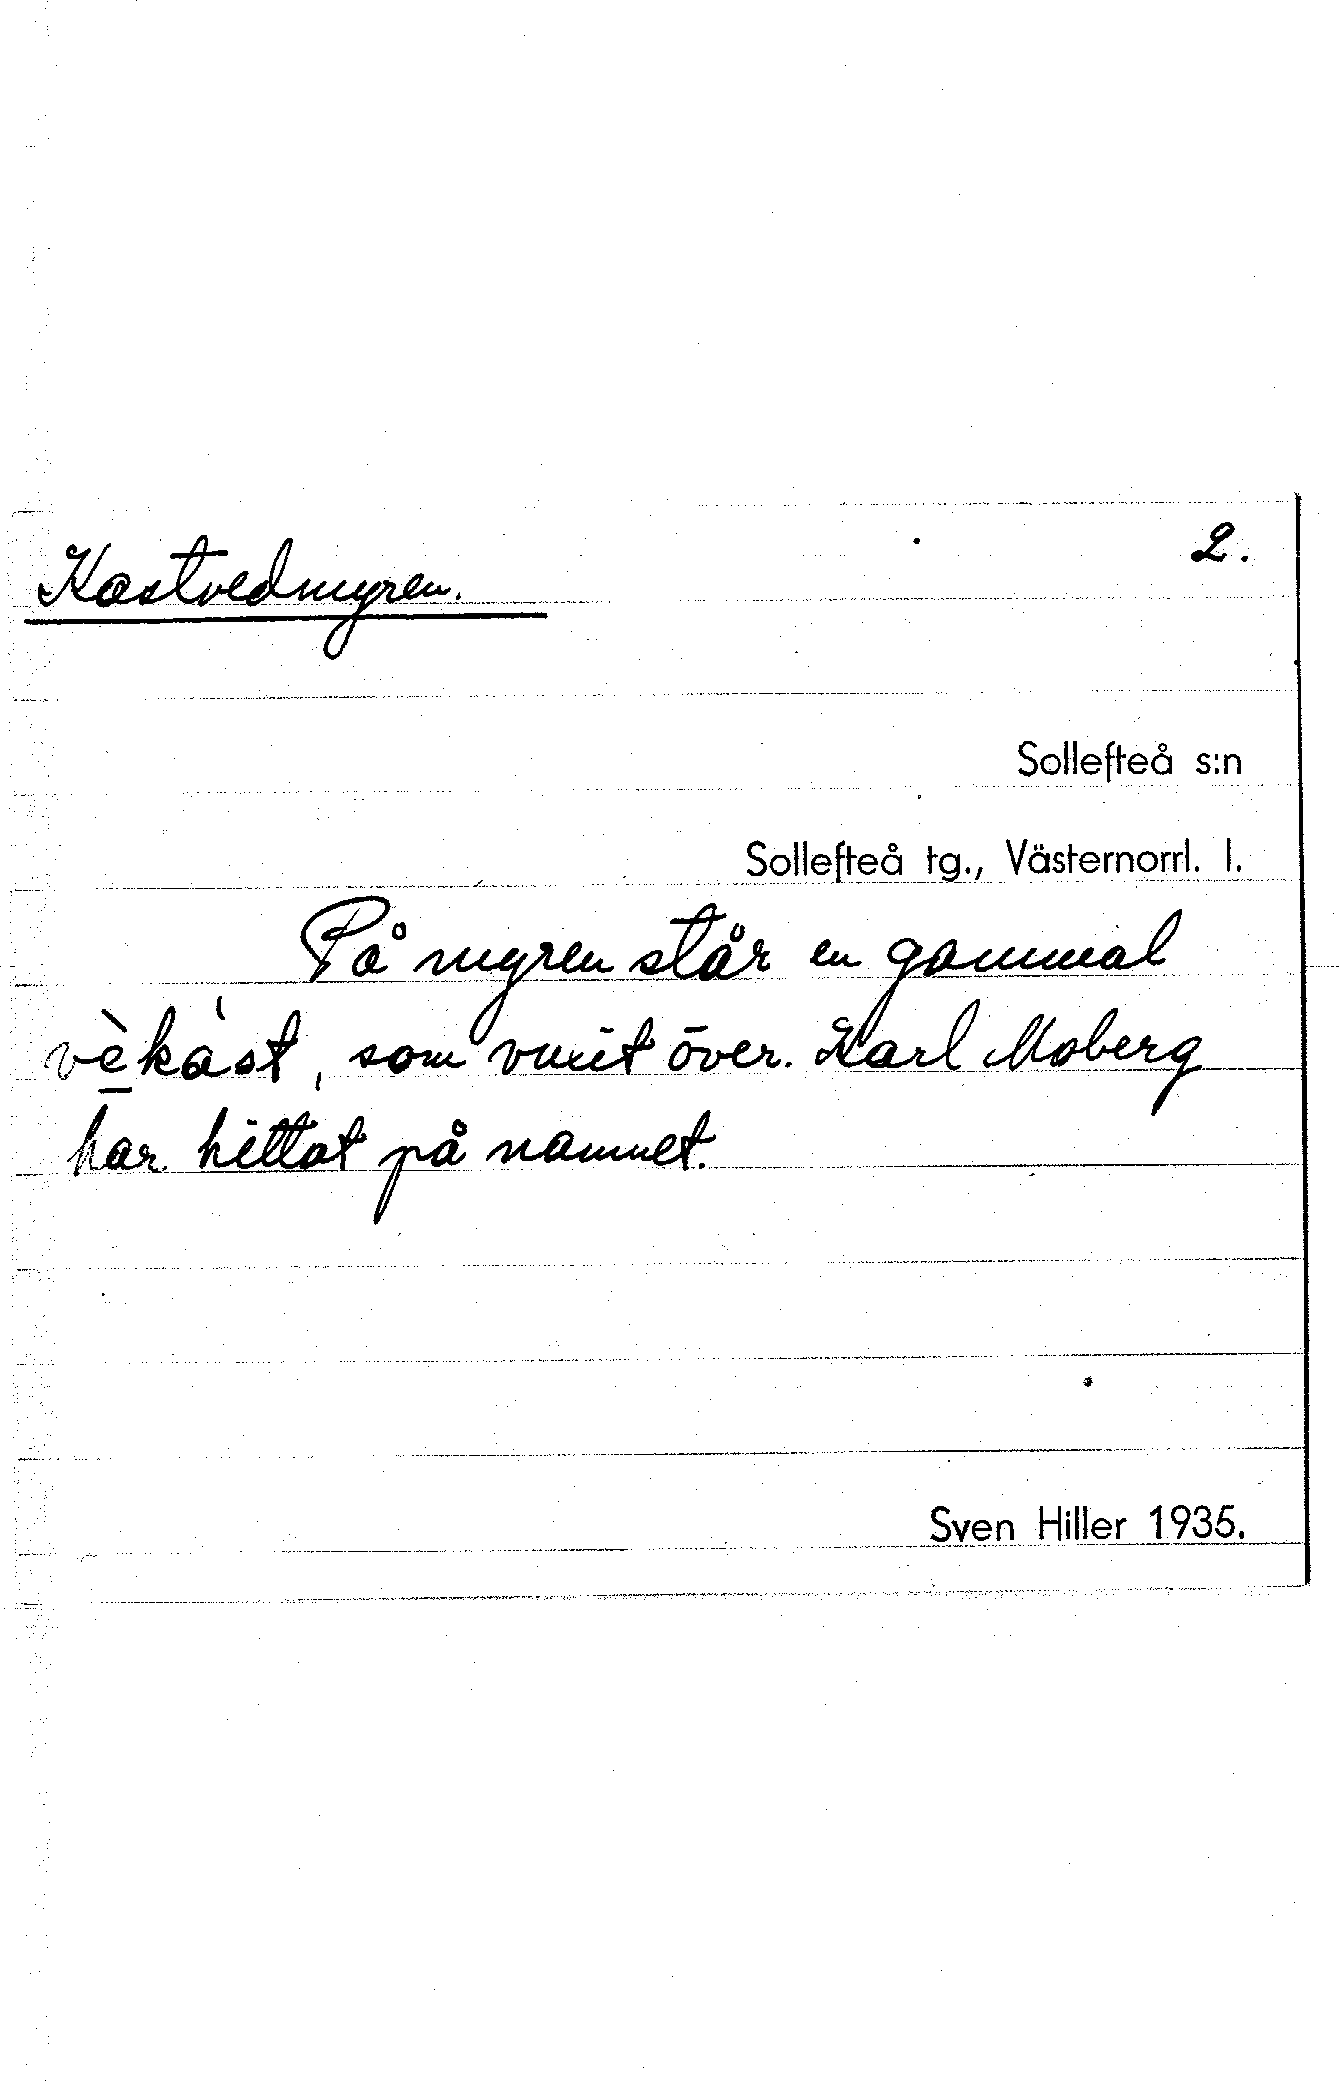 Kastvedmyren.
2.
Sollefteå s:n
Sollefteå tg., Västernorrl. l.
På myren står en gammal
vèkást, som vuxit över. Karl Moberg
har hittat på namnet.
Sven Hiller 1935.